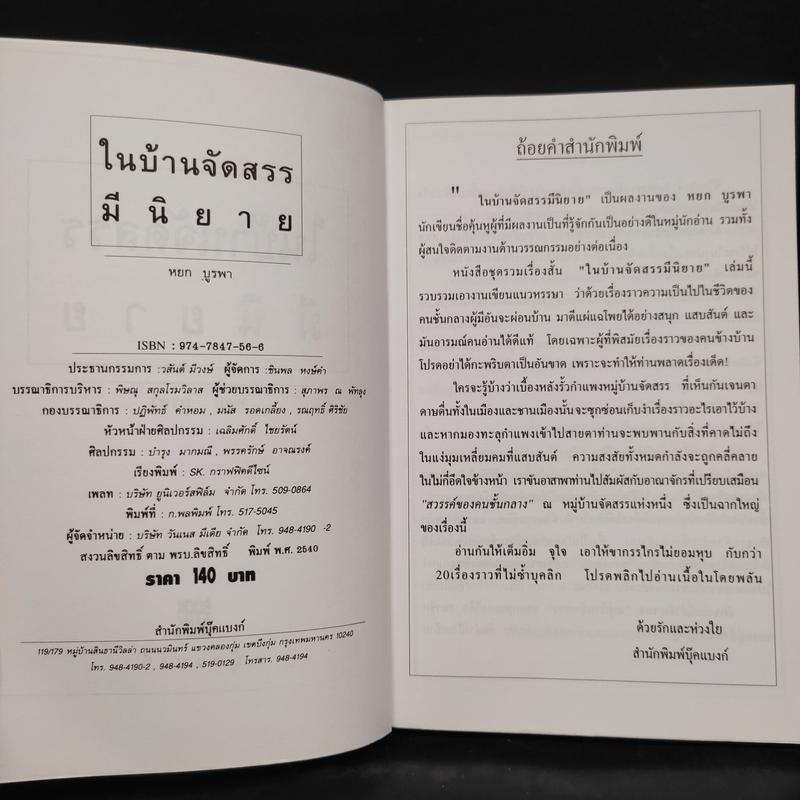 ในบ้านจัดสรร
มี นิ ย า ย
หยก บูรพา
ISBN : 974-7847-56-6
ประธานกรรมการ : วสันต์ มีวงษ์ ผู้จัดการ : ชินพล หงษ์คำ
บรรณาธิการบริหาร : พิษณุ สกุลโรมวิลาส ผู้ช่วยบรรณาธิการ : สุภาพร ณ พัทลุง
กองบรรณาธิการ : ปฏิพัทธ์ คำหอม , มนัส รอดเกลี้ยง , รณฤทธิ์ ศิริชัย
หัวหน้าฝ่ายศิลปกรรม : เฉลิมศักดิ์ ไชยรัตน์
ศิลปกรรม : บำรุง มากมณี , พรรครักษ์ อาจณรงค์
เรียงพิมพ์ : SK. กราฟฟิคดีไซน์
เพลท : บริษัท ยูนิเวอร์สฟิล์ม จำกัด โทร. 509-0864
พิมพ์ที่ : ก.พลพิมพ์ โทร. 517-5045
ผู้จัดจำหน่าย : บริษัท วันเนส มีเดีย จำกัด โทร. 948-4190 -2
สงวนลิขสิทธิ์ ตาม พรบ.ลิขสิทธิ์ พิมพ์ พ.ศ. 2540
ราคา 140 บาท
สำนักพิมพ์บุ๊คแบงก์
119/179 หมู่บ้านสินธานีวิลล่า ถนนนวมินทร์ แขวงคลองกุ่ม เขตบึงกุ่ม กรุงเทพมหานคร 10240
โทร. 948-4190-2 , 948-4194 , 519-0129 โทรสาร. 948-4194
ถ้อยคำสำนักพิมพ์
" ในบ้านจัดสรรมีนิยาย" เป็นผลงานของ หยก บูรพา
นักเขียนชื่อคุ้นหูผู้ที่มีผลงานเป็นที่รู้จักกันเป็นอย่างดีในหมู่นักอ่าน รวมทั้ง
ผู้สนใจติดตามงานด้านวรรณกรรมอย่างต่อเนื่อง
หนังสือชุดรวมเรื่องสั้น "ในบ้านจัดสรรมีนิยาย" เล่มนี้
รวบรวมเอางานเขียนแนวหรรษา ว่าด้วยเรื่องราวความเป็นไปในชีวิตของ
คนชั้นกลางผู้มีอันจะผ่อนบ้าน มาตีแผ่แฉโพยได้อย่างสนุก แสบสันต์ และ
มันอารมณ์คนอ่านได้ดีแท้ โดยเฉพาะผู้ที่พิสมัยเรื่องราวของคนข้างบ้าน
โปรดอย่าได้กะพริบตาเป็นอันขาด เพราะจะทำให้ท่านพลาดเรื่องเด็ด!
ใครจะรู้บ้างว่าเบื้องหลังรั้วกำแพงหมู่บ้านจัดสรร ที่เห็นกันเจนตา
ดาษดื่นทั้งในเมืองและชานเมืองนั้นจะซุกซ่อนเก็บงำเรื่องราวอะไรเอาไว้บ้าง
และหากมองทะลุกำแพงเข้าไปสายตาท่านจะพบพานกับสิ่งที่คาดไม่ถึง
ในแง่มุมเหลี่ยมคมที่แสบสันต์ ความสงสัยทั้งหมดกำลังจะถูกคลี่คลาย
ในไม่กี่อึดใจข้างหน้า เราขันอาสาพาท่านไปสัมผัสกับอาณาจักรที่เปรียบเสมือน
"สวรรค์ของคนชั้นกลาง" ณ หมู่บ้านจัดสรรแห่งหนึ่ง ซึ่งเป็นฉากใหญ่
ของเรื่องนี้
อ่านกันให้เต็มอิ่ม จุใจ เอาให้ขากรรไกรไม่ยอมหุบ กับกว่า
20เรื่องราวที่ไม่ซ้ำบุคลิก โปรดพลิกไปอ่านเนื้อในโดยพลัน
ด้วยรักและห่วงใย
สำนักพิมพ์บุ๊คแบงก์